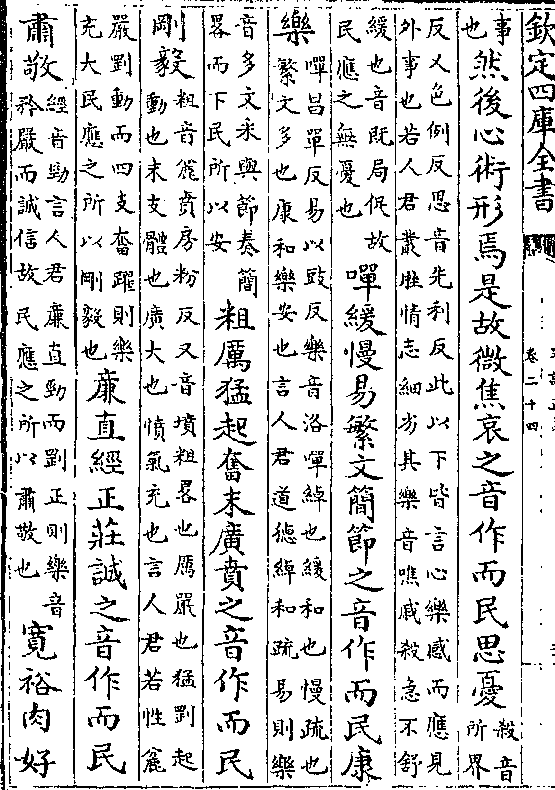 欽定四庫全書
卷二十四
事
也
然後心術形焉是故微焦哀之音作而民思憂
殺音
所界
反又色例反思音先利反此以下皆言心樂感而應見
外事也若人君叢脞情志細劣其樂音噍戚殺急不舒
緩也音既局促故
民應之無憂也
嘽緩慢易繁文簡節之音作而民康
樂
嘽昌單反易以豉反樂音洛嘽綽也緩和也慢疏也
繁文多也康和樂安也言人君道德綽和疏易則樂
音多文采與節奏簡
畧而下民所以安
粗厲猛起奮末廣賁之音作而民
剛毅
粗音麄賁房粉反又音墳粗畧也厲嚴也猛剛起
動也末支體也廣大也憤氣充也言人君若性麄
嚴剛動而四支奮躍則樂
充大民應之所以剛毅也
廉直經正莊誠之音作而民
肅敬
經音勁言人君廉直勁而剛正則樂音
矜嚴而誠信故民應之所以肅敬也
寛裕肉好